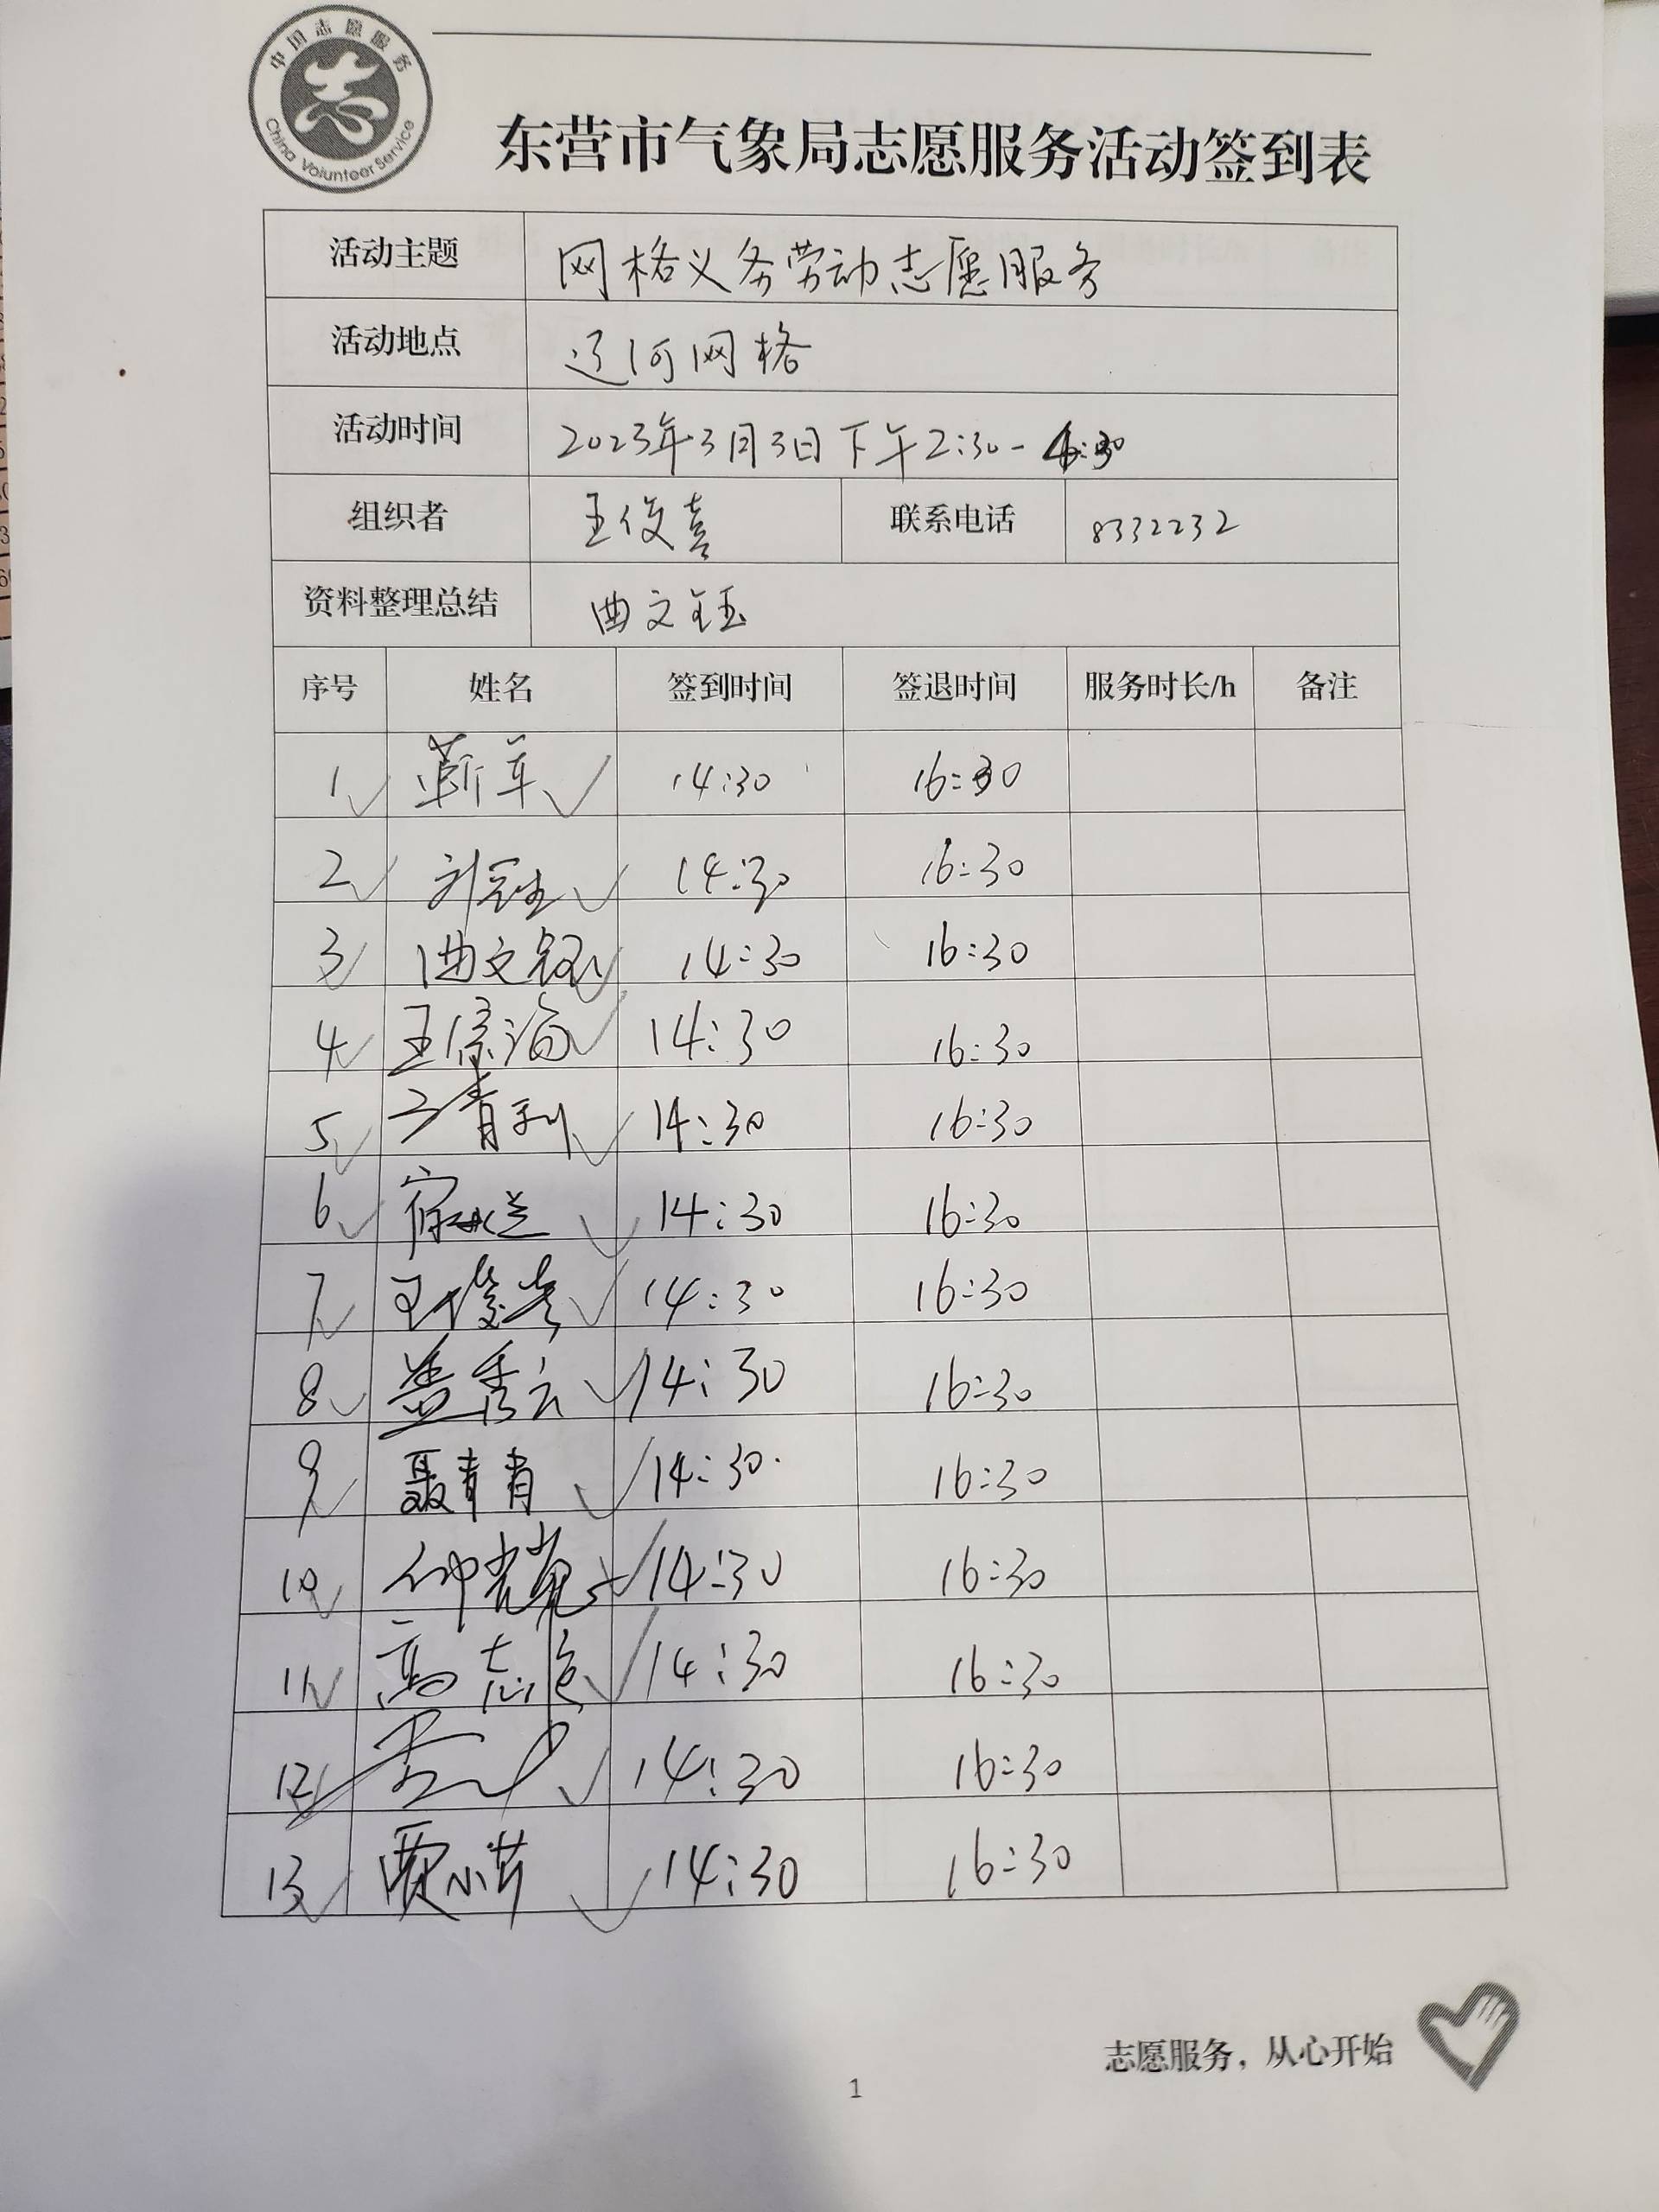 中国志愿服务
China Volunteer Service
东营市气象局志愿服务活动签到表
活动主题 网格义务劳动志愿服务
活动地点 辽河网格
活动时间 2023年3月3日下午2:30-4:30
组织者 王俊喜 联系电话 8332232
资料整理总结 曲文钰
序号 姓名 签到时间 签退时间 服务时长/h 备注
1 靳军 14:30 16:30
2 14:30 16:30
3 曲文钰 14:30 16:30
4 14:30 16:30
5 14:30 16:30
6 14:30 16:30
7 王俊喜 14:30 16:30
8 盖秀云 14:30 16:30
9 聂青青 14:30 16:30
10 14:30 16:30
11 14:30 16:30
12 14:30 16:30
13 贾小芹 14:30 16:30
志愿服务，从心开始
1